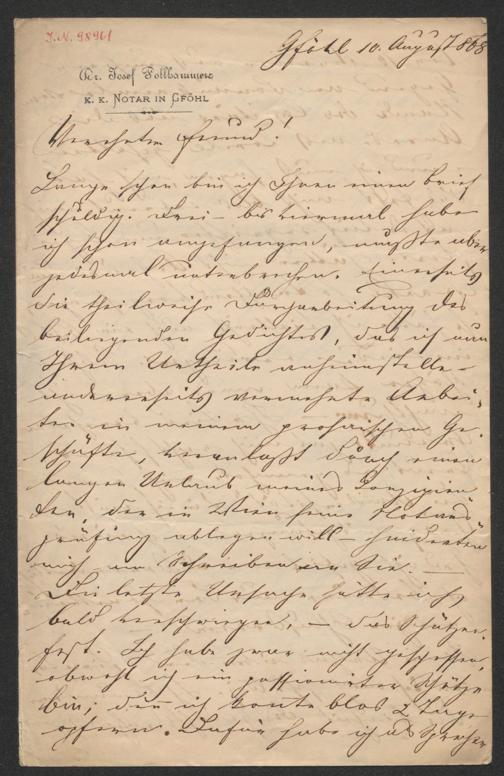 I.N. 98961
Gföhl 10. August 868
Dr. Josef Pollhammer
K. K. NOTAR IN GFÖHL
Verehrter Freund!
Lange schon bin ich Ihnen einen Brief
schuldig. Drei- bis viermal habe
ich schon angefangen, mußte aber
jedesmal unterbrechen. Einerseits
die theilweise Durcharbeitung des
beiliegenden Gedichtes, das ich nun
Ihrem Urtheile anheimstelle –
anderseits vermehrte Arbei-
ten in meinem prosaischen Ge-
schäfte, veranlaßt durch einen
langen Urlaub meines Conzipien-
ten, der in Wien seine Notars
prüfung ablegen will – hinderten
mich am Schreiben an Sie. –
Die letzte Ursache hätte ich
bald verschwiegen, – das Schützen-
fest. Ich habe zwar nicht geschossen,
obwohl ich ein passionirter Schütze
bin; denn ich konnte blos 2 Tage
opfern. Dafür habe ich als Sprecher